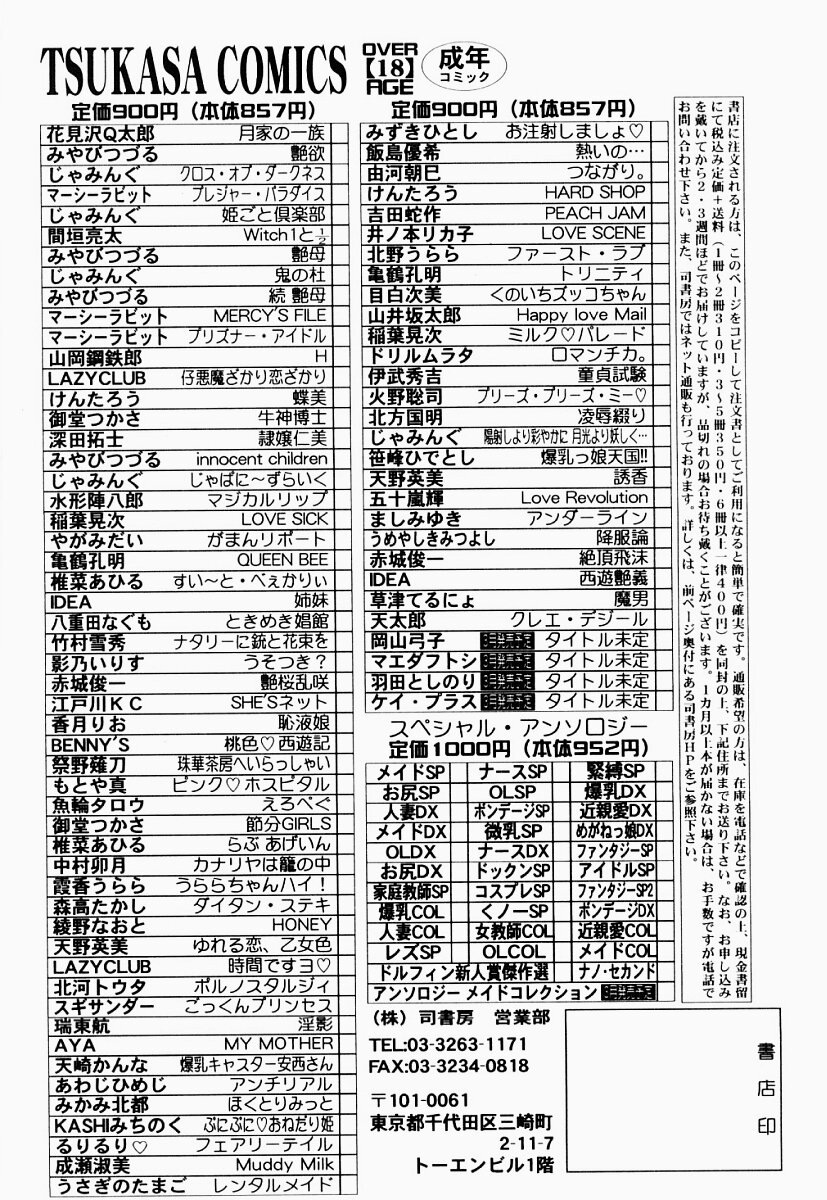 TSUKASA COMICS
OVER
【18】
AGE
成年
コミック
定価900円（本体857円）
花見沢Q太郎 月家の一族
みやびつづる 艶欲
じゃみんぐ クロス・オブ・ダークネス
マーシーラビット プレジャー・パラダイス
じゃみんぐ 姫ごと倶楽部
間垣亮太 Witch1と½
みやびつづる 艶母
じゃみんぐ 鬼の杜
みやびつづる 続 艶母
マーシーラビット MERCY'S FILE
マーシーラビット プリズナー・アイドル
山岡鋼鉄郎 H
LAZYCLUB 仔悪魔ざかり恋ざかり
けんたろう 蝶美
御堂つかさ 牛神博士
深田拓士 隷嬢仁美
みやびつづる innocent children
じゃみんぐ じゃぱに〜ずらいく
水形陣八郎 マジカルリップ
稲葉晃次 LOVE SICK
やがみだい がまんリポート
亀鶴孔明 QUEEN BEE
椎菜あひる すい〜と・べぇかりぃ
IDEA 姉妹
八重田なぐも ときめき娼館
竹村雪秀 ナタリーに銃と花束を
影乃いりす うそつき？
赤城俊一 艶桜乱咲
江戸川KC SHE'Sネット
香月りお 恥液娘
BENNY'S 桃色♡西遊記
祭野薙刀 珠華茶房へいらっしゃい
もとや真 ピンク♡ホスピタル
魚輪タロウ えろぺぐ
御堂つかさ 節分GIRLS
椎菜あひる らぶ あげいん
中村卯月 カナリヤは籠の中
霞香うらら うららちゃんハイ！
森高たかし ダイタン・ステキ
綾野なおと HONEY
天野英美 ゆれる恋、乙女色
LAZYCLUB 時間ですヨ♡
北河トウタ ポルノスタルジィ
スギサンダー ごっくんプリンセス
瑞東航 淫影
AYA MY MOTHER
天崎かんな 爆乳キャスター安西さん
あわじひめじ アンチリアル
みかみ北都 ほくとりみっと
KASHIみちのく ぷにぷに♡おねだり姫
るりるり♡ フェアリーテイル
成瀬淑美 Muddy Milk
うさぎのたまご レンタルメイド
定価900円（本体857円）
みずきひとし お注射しましょ♡
飯島優希 熱いの…
由河朝巳 つながり。
けんたろう HARD SHOP
吉田蛇作 PEACH JAM
井ノ本リカ子 LOVE SCENE
北野うらら ファースト・ラブ
亀鶴孔明 トリニティ
目白次美 くのいちズッコちゃん
山井坂太郎 Happy love Mail
稲葉晃次 ミルク♡パレード
ドリルムラタ ロマンチカ。
伊武秀吉 童貞試験
火野聡司 プリーズ・プリーズ・ミー♡
北方国明 凌辱綴り
じゃみんぐ 陽射しより彩やかに 月光より妖しく…
笹峰ひでとし 爆乳っ娘天国!!
天野英美 誘香
五十嵐輝 Love Revolution
ましみゆき アンダーライン
うめやしきみつよし 降服論
赤城俊一 絶頂飛沫
IDEA 西遊艶義
草津てるにょ 魔男
天太郎 クレエ・デジール
岡山弓子 タイトル未定
マエダフトシ タイトル未定
羽田としのり タイトル未定
ケイ・プラス タイトル未定
スペシャル・アンソロジー
定価1000円（本体952円）
メイドSP ナースSP 緊縛SP
お尻SP OLSP 爆乳DX
人妻DX ボンデージSP 近親愛DX
メイドDX 微乳SP めがねっ娘DX
OLDX ナースDX ファンタジーSP
お尻DX ドックンSP アイドルSP
家庭教師SP コスプレSP ファンタジーSP2
爆乳COL くノ一SP ボンデージDX
人妻COL 女教師COL 近親愛COL
レズSP OLCOL メイドCOL
ドルフィン新人賞傑作選 ナノ・セカンド
アンソロジー メイドコレクション
（株）司書房 営業部
TEL:03-3263-1171
FAX:03-3234-0818
〒101-0061
東京都千代田区三崎町
2-11-7
トーエンビル1階
書店印
書店に注文される方は、このページをコピーして注文書としてご利用になると簡単で確実です。通販希望の方は、在庫を電話などで確認の上、現金書留
にて税込み定価＋送料（1冊〜2冊310円・3〜5冊350円・6冊以上一律400円）を同封の上、下記住所までお送り下さい。なお、お申し込み
を戴いてから2・3週間ほどでお届けしていますが、品切れの場合お待ち戴くことがございます。1カ月以上本が届かない場合は、お手数ですが電話で
お問い合わせ下さい。また、司書房ではネット通販も行っております。詳しくは、前ページ奥付にある司書房HPをご参照下さい。